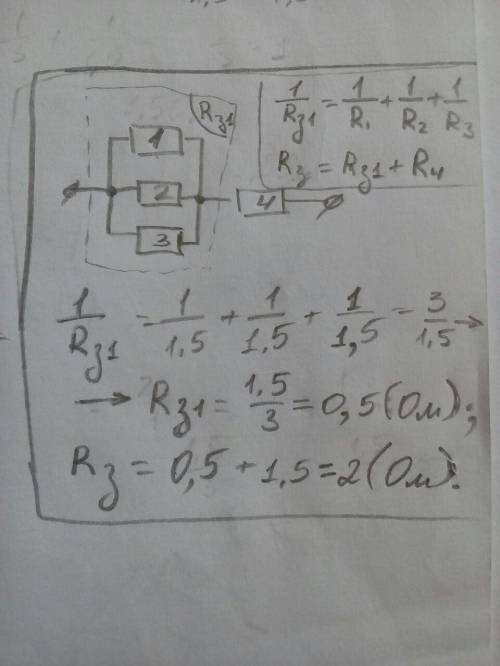 Rз1
1/Rз1 = 1/R1 + 1/R2 + 1/R3
Rз = Rз1 + R4
1
2
3
4
1/Rз1 = 1/1,5 + 1/1.5 + 1/1,5 = 3/1,5 →
→ Rз1 = 1,5/3 = 0,5 (Ом);
Rз = 0,5 + 1,5 = 2 (Ом).